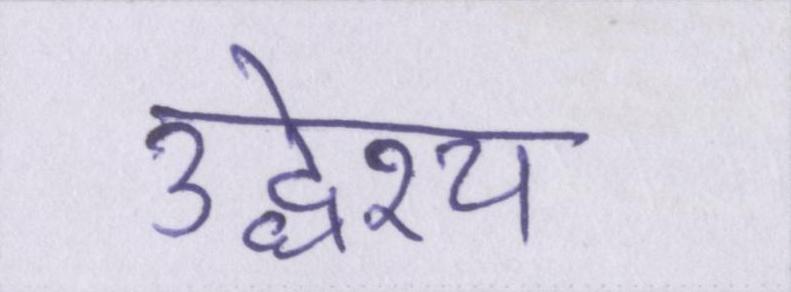 उद्धेश्य